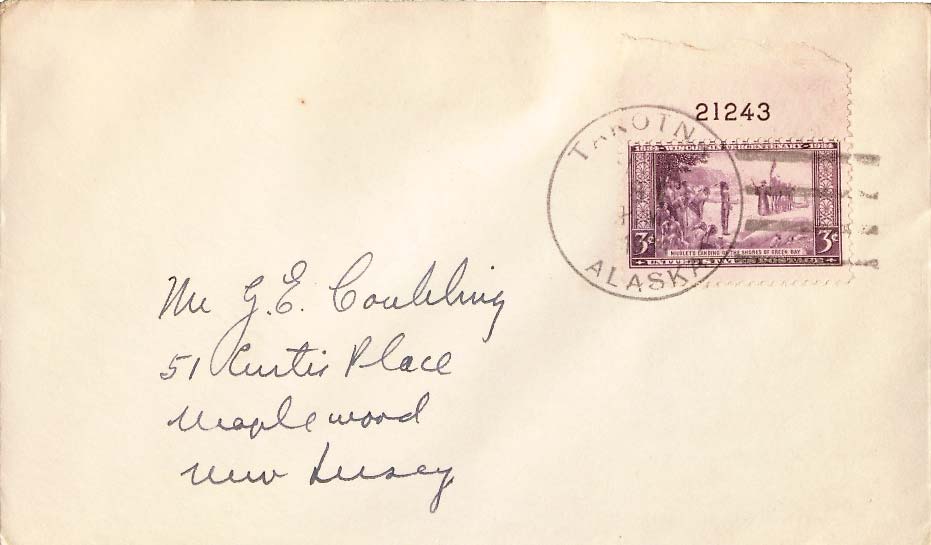 21243
TAKOTNA
ALASKA
1634-WISCONSIN TERCENTENARY-1934
3¢ 3¢
NICOLET'S LANDING ON THE SHORES OF GREEN BAY
UNITED STATES POSTAGE
Mr G. E. 
51 Curtis Place
Maplewood
New Jersey